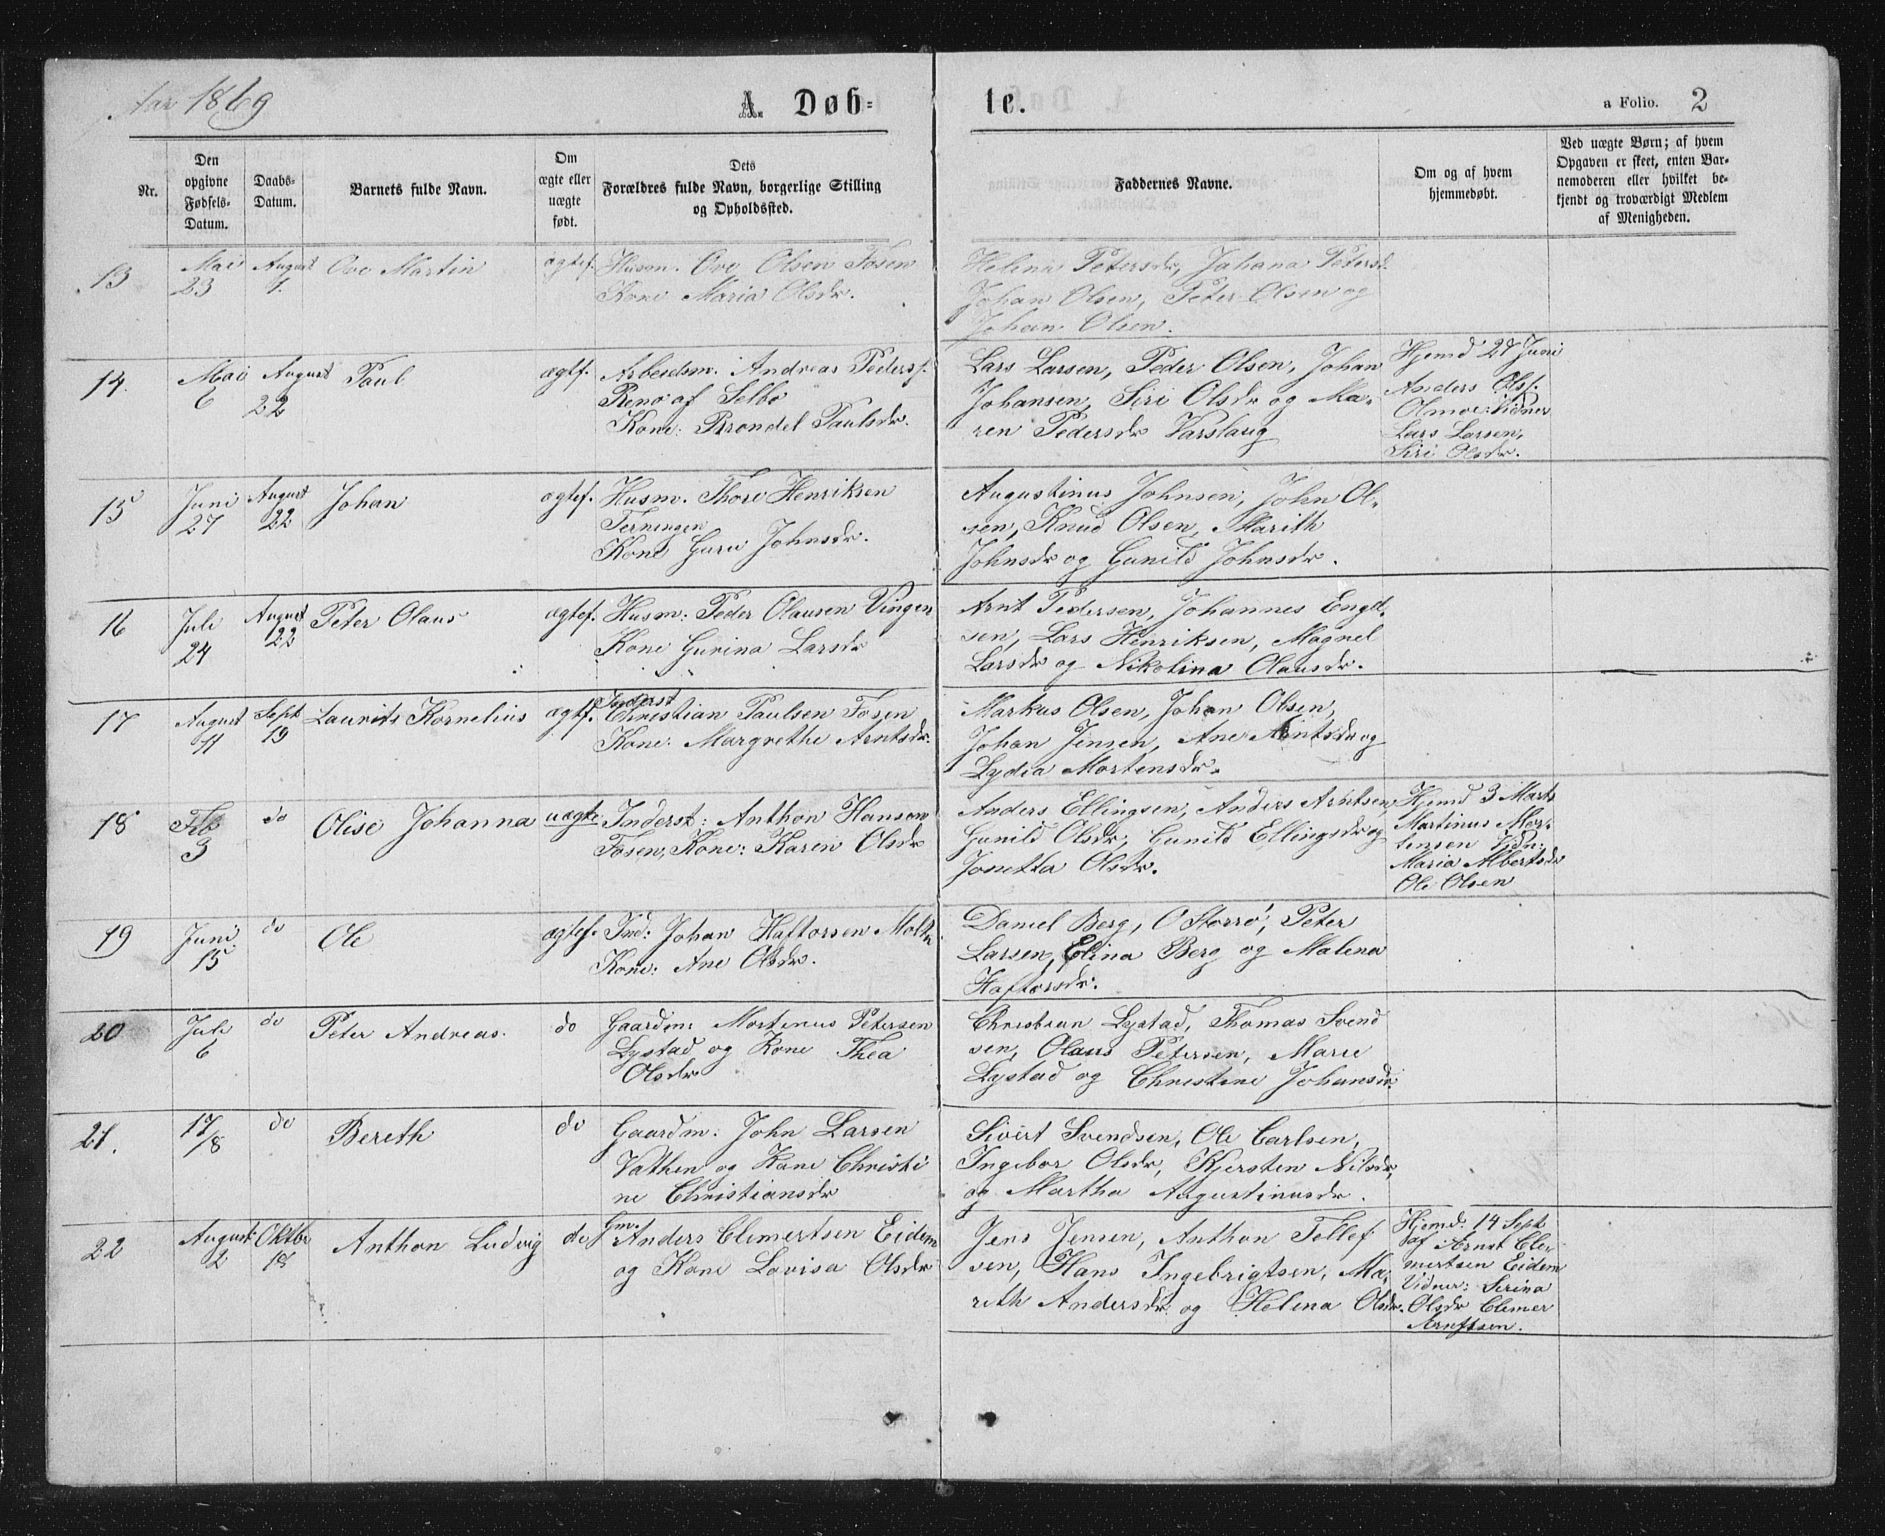 Aar 1869
A. Døb-
te.
a Folio. 2
Nr.
Den opgivne Fødsels-Datum.
Daabs-Datum.
Barnets fulde Navn.
Om ægte eller uægte født.
Dets Forældres fulde Navn, borgerlige Stilling og Opholdssted.
Faddernes Navne.
Om og af hvem hjemmedøbt.
Ved uægte Børn; af hvem Opgaven er skeet, enten Barnemoderen eller hvilket bekjendt og troværdigt Medlem af Menigheden.
13
Mai 23
August 1.
Ove Martin
ægtef.
Husm. Ove Olsen Fosen
Kone Maria Olsdr.
Helena Petersdr, Johana Petersd.
Johan Olsen, Peter Olsen og
Johan Olsen.
14.
Mai 6
August 22
Paul
ægtf.
Arbeidsm. Andreas Peders.
Renø af Selbo
Kone: Brondel Paulsdr.
Lars Larsen, Peder Olsen, Johan
Johansen, Siri Olsdr og Ma-
ren Pedersdr Varslaug
Hjemd 27 Juni
Anders Ols.
Olmoe: Vidner
Lars Larsen,
Siri Olsdr.
15
Juni 27
August 22
Johan
ægtef.
Husm. Thore Henriksen
Terningen
Kone Guru Johnsdr.
Augustinus Johnsen, John Ol-
sen, Knud Olsen, Marith
Johnsdr og Gunild Johnsdr.
16
Juli 24
August 22
Peter Olaus
ægtef.
Husm: Peder Olausen Vingen
Kone Gurina Larsdr
Arnt Pedersen, Johannes Engel-
sen, Lars Henriksen, Magnel
Larsdr og Nikolina Olausdr.
17
August 11
Sept 19
Laurits Kornelius
ægtf.
Inderst
Christian Paulsen Fosen
Kone: Margrethe Arntsdr.
Markus Olsen, Johan Olsen,
Johan Jensen, Ane Arntsdr og
Lydia Mortensdr.
18
Feb 3
do
Olise Johanna
uægte
Inderst: Anthon Hansen
Fosen, Kone: Karen Olsdr
Anders Ellingsen, Anders Arntsen,
Gunild Olsdr, Gunild Ellingsdr og
Jonetta Olsdr.
Hjemd 3 Marts
Martinus Mor-
tensen Vidn:
Maria Albertsdr
Ole Olsen
19
Juni 15
do
Ole
ægtef.
Ind: Johan Haftorsen
Kone: Ane Olsdr.
Daniel Berg, O Storrø, Peter
Larsen, Elina Berg og Malena
Haftorsdr.
20
Juli 6
do
Peter Andreas.
do
Gaardm: Mortinus Petersen
Lystad og Kone Thea
Olsdr
Christian Lystad, Thomas Svend
sen, Olaus Petersen, Marie
Lystad og Christine Johansdr.
21.
17/8
do
Bereth
do
Gaardm: John Larsen
Vathen og Kone Christi
ne Christiansdr
Sivert Svendsen, Ole Carlsen,
Ingebor Olsdr, Kjersten Nilsdr,
og Martha Augustinusdr.
22
August 2
Oktbr 18
Anthon Ludvig
do
Gm.
Anders Clemertsen Eidem
og Kone Lovisa Olsdr
Jens Jensen, Anthon Tellef
sen, Hans Ingebrigtsen, Ma-
reth Andersdr og Helena Olsdr.
Hjemd: 14 Sept
af Arnst Cle-
mertsen Eidem
Vidner: Serina
Olsdr Clemer
Arntsen.